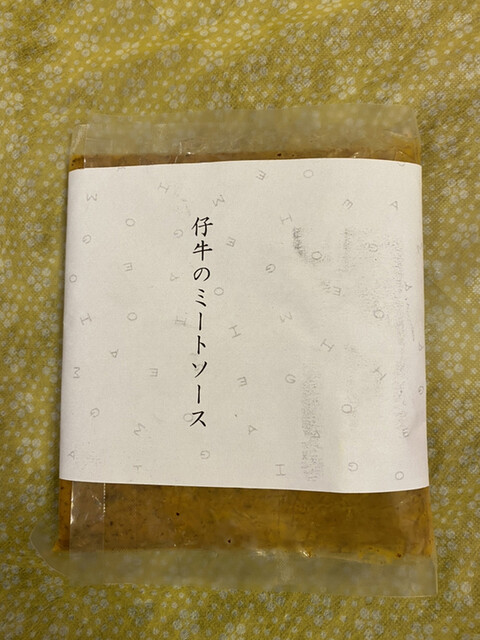 仔牛のミートソース